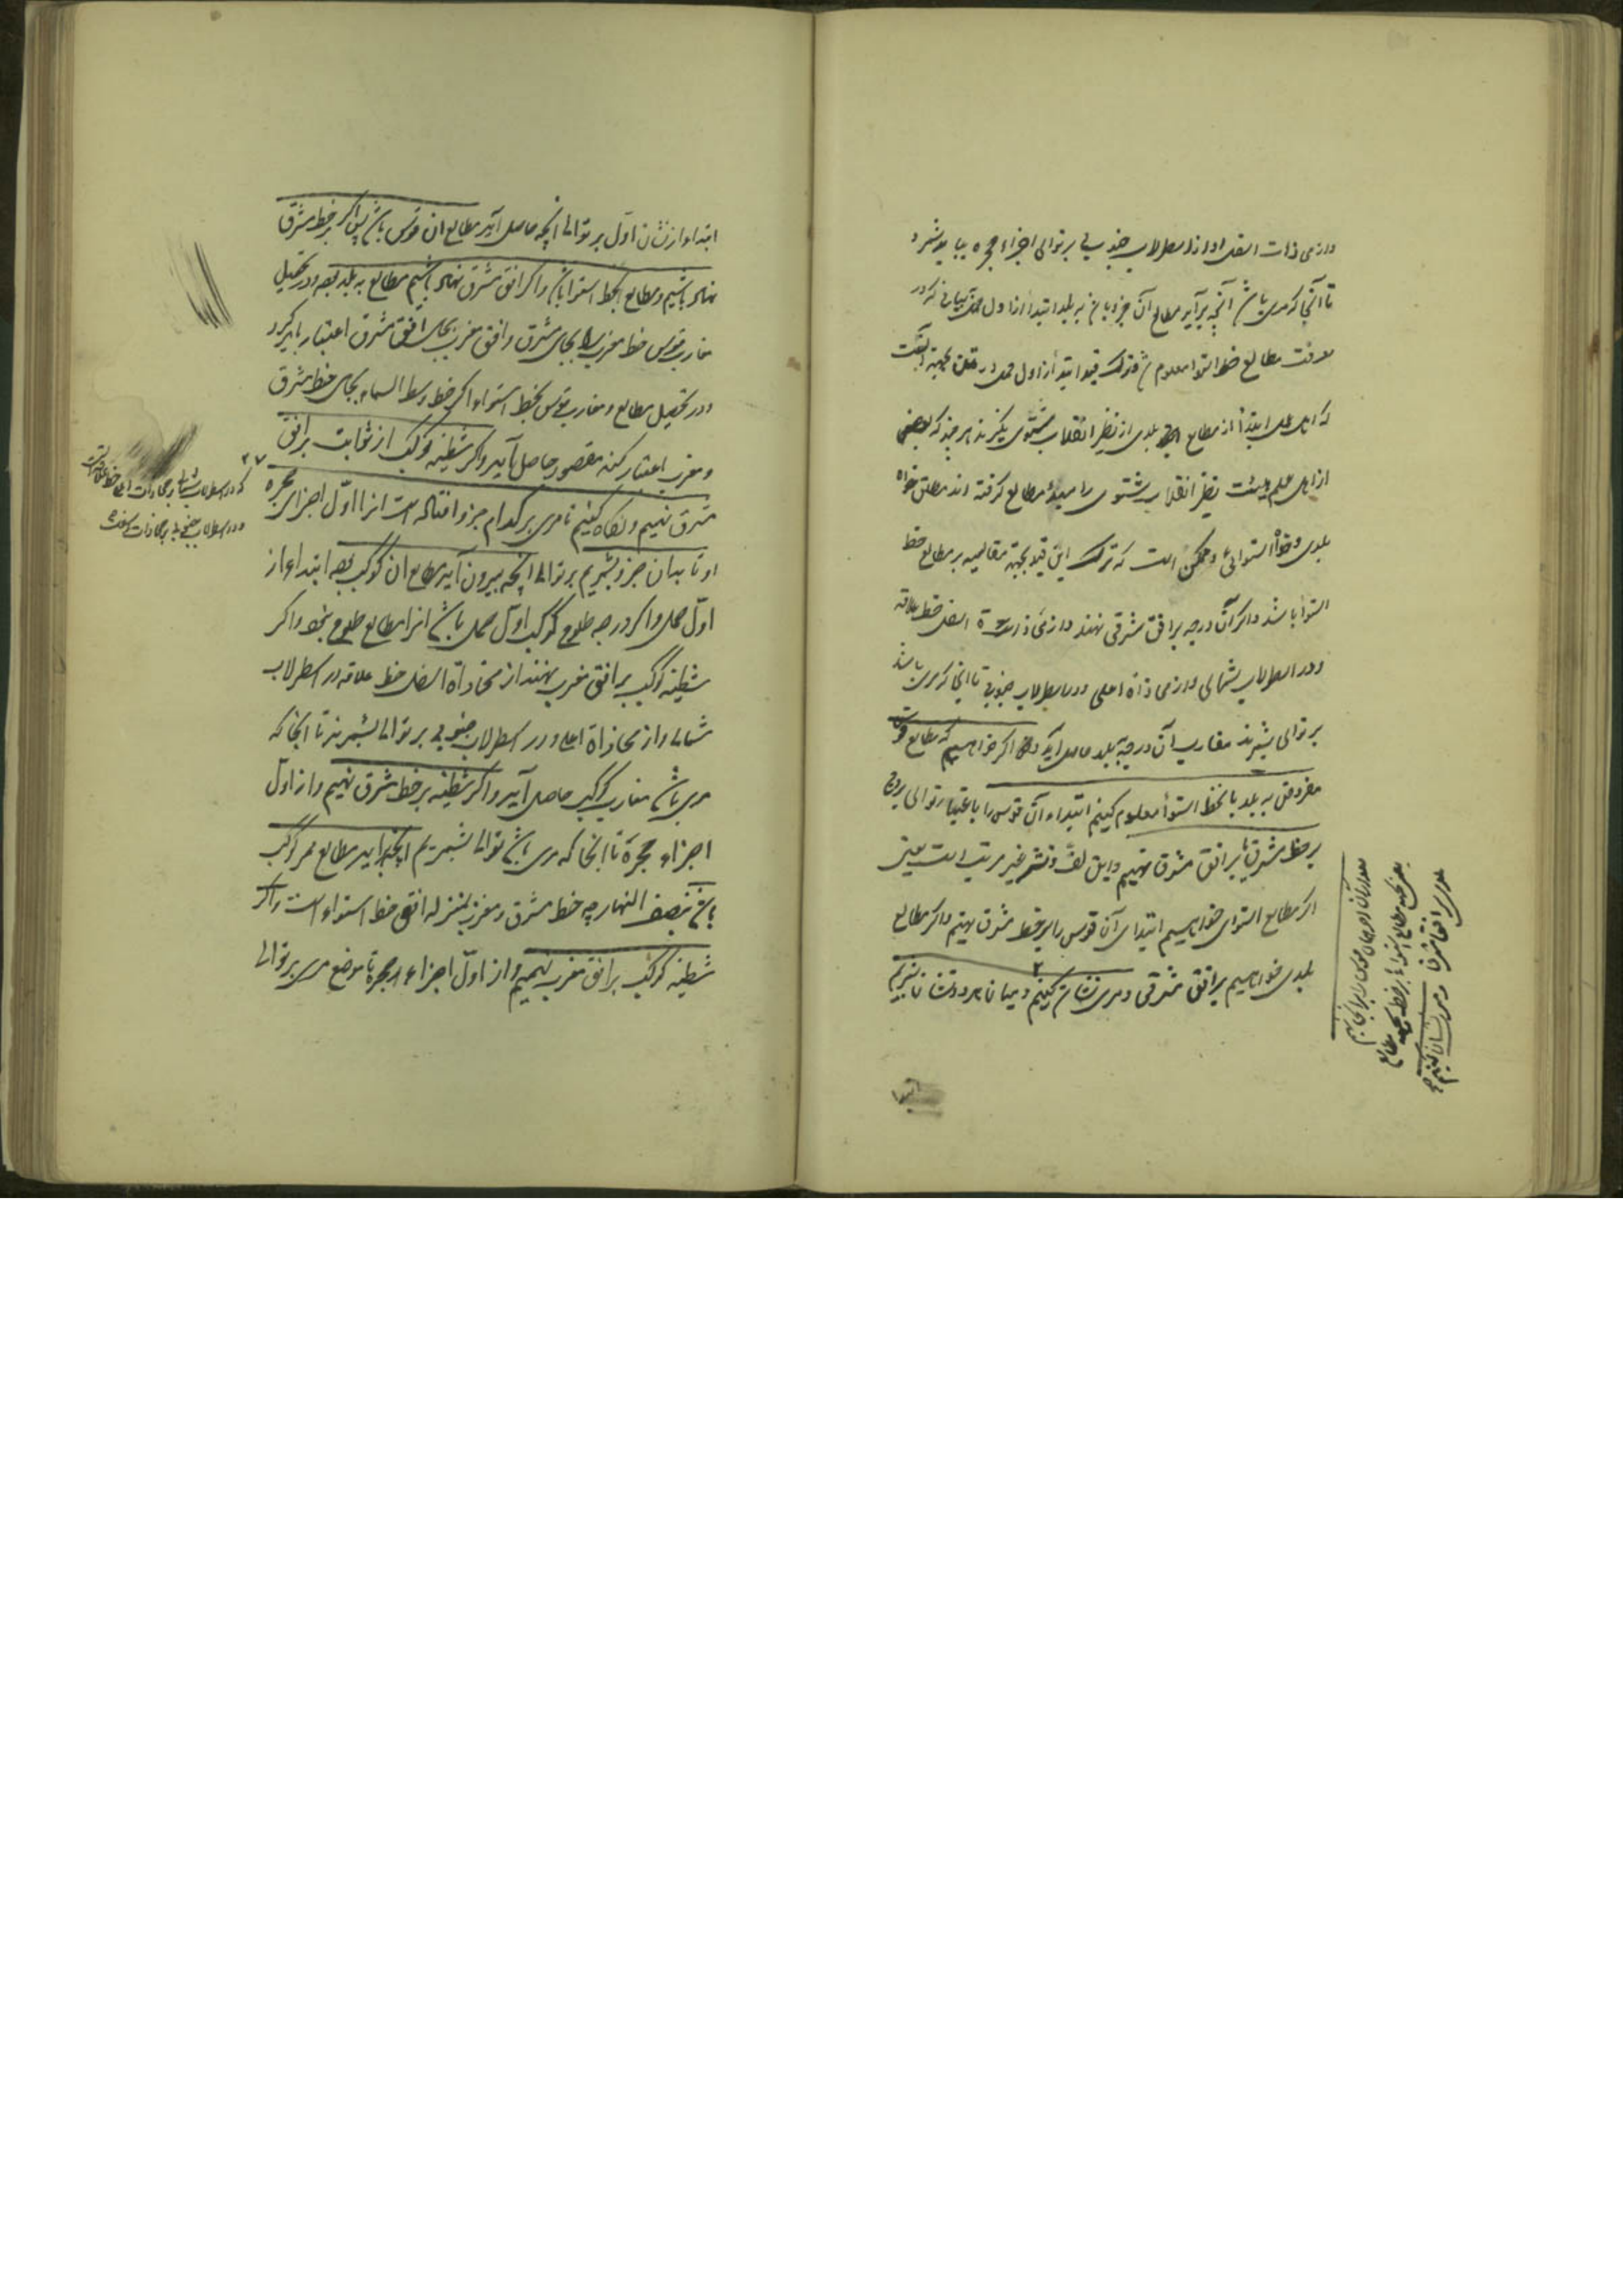 و از محاذات اسفل او از اسطرلاب جنوبی بر توالی اجزاء حجره بباید شمرد
تا آنجا که مری باشد آنچه برآید مطالع آن جزو باشد به بلد ابتدا از اول حمل بیانی که در
معرفت مطالع خط استوا معلوم شد قید ابتدا از اول حمل در بجهة آنست
که اهل عمل ابتدا از مطالع بلدی از نظیر انقلاب شتوی بگیرند هر چند که بعضی
از اهل علم هیئت نظیر انقلاب شتوی را مبدأ مطالع گرفته اند مطلق خواه
بلدی و خواه استوائی و ممکن است که ترک این قید بجهة مقایسه بر مطالع خط
استوا باشد و اگر آن درجه بر افق مشرقی نهند و از محاذات اسفل خط علاقه
در اسطرلاب شمالی و از محاذاة اعلی در اسطرلاب جنوبی تا آنجا که مری باشد
بر توالی بشمرند مغارب آن درجه به بلد حاصل آید و اگر خواهیم که مطالع قوس
مفروض به بلد یا بخط استوا معلوم کنیم ابتداء آن قوس را باعتبار توالی بروج
بر خط مشرق یا بر افق مشرق نهیم و این لف و نشر غیر مرتب است یعنی
اگر مطالع استوای خواهیم ابتدای آن قوس را بر خط مشرق نهیم و اگر مطالع
بلدی خواهیم بر افق مشرقی و مری نشان کنیم و میان هر دو نشان بشمریم
یعنی بجهة مطالع استواء بر خط بجهة مطالع
بلدی بر افق مشرق و مری نشان کنیم
ابتدا
ابتدا از نشان اول بر توالی آنچه حاصل آید مطالع آن قوس باشد پس اگر بر خط مشرق
نهاده باشیم مطالع بخط استوا باشد و اگر افق مشرق نهاده باشیم مطالع به بلد بود و در تحصیل
مغارب قوس خط مغرب را بجای مشرق و افق مغرب بجای افق مشرق اعتبار باید کرد
و در تحصیل مطالع و مغارب قوس بخط استواء اگر خط وسط السماء بجای خط مشرق
و مغرب اعتبار کنند مقصود حاصل آید و اگر شظیه کوکب از ثوابت بر افق
مشرق نهیم و نگاه کنیم تا مری بر کدام جزو افتاده است از اول اجزای حجره
او تا بدان جزو بشمریم بر توالی آنچه بیرون آید مطالع آن کوکب بود ابتداء از
اول حمل و اگر درجه طلوع کوکب اول حمل باشد آنرا مطالع طلوع نبود و اگر
شظیه کوکب بر افق مغرب نهند از محاذاة اسفل خط علاقه در اسطرلاب
شمالی و از محاذاة اعلی در اسطرلاب جنوبی بر توالی بشمرند تا آنجا که
مری باشد مغارب کوکب حاصل آید و اگر شظیه بر خط مشرق نهیم و از اول
اجزاء حجرة تا آنجا که مری باشد بتوالی بشمریم آنچه برآید مطالع ممر کوکب
باشد بنصف النهار چه خط مشرق و مغرب بمنزله افق خط استواء است و اگر
شظیه کوکب بر افق مغرب نهیم و از اول اجزاء حجرة تا موضع مری بر توالی
۲۷
که در اسطرلاب شمالی بر محاذات اعلی خط علاقه است
و در اسطرلاب جنوبی بر محاذات اسفل